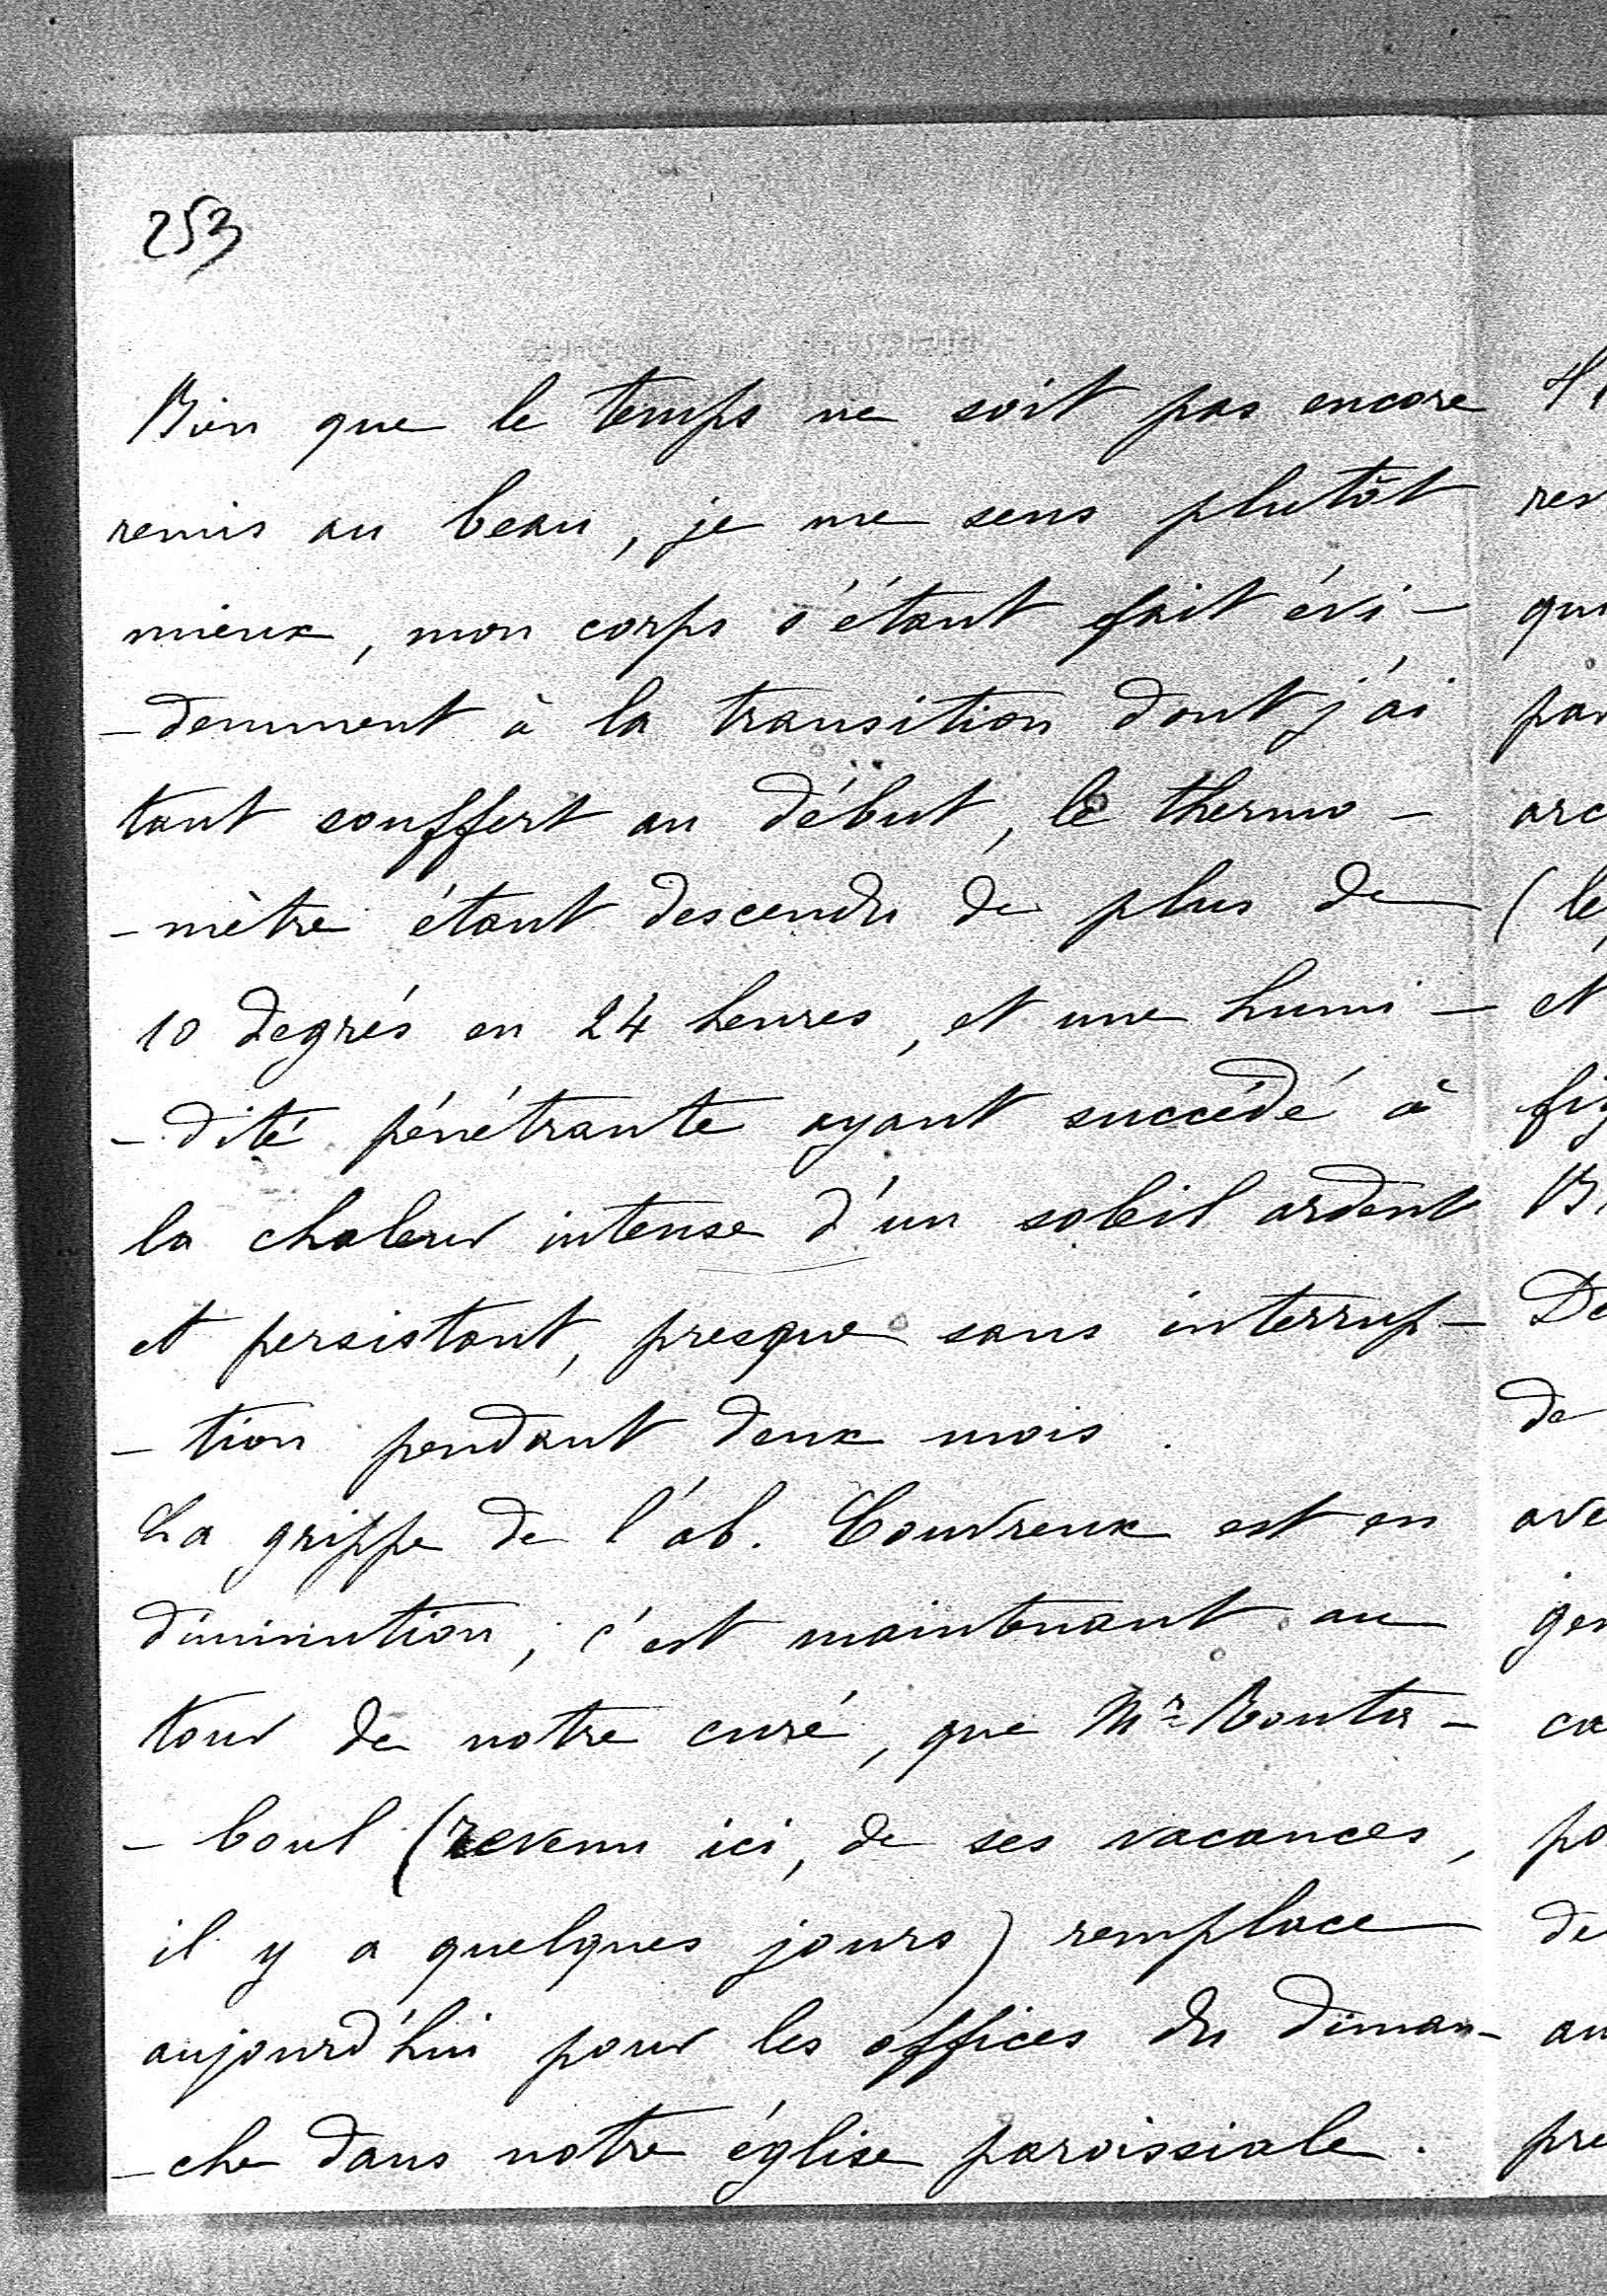 253
Bien que le temps ne soit pas encore
remis au beau, je me sens plutôt
mieux, mon corps s'étant fait évi-
-demment à la transition dont j'ai
tant souffert au début, le thermo-
-mètre étant descendu de plus de
10 degrés en 24 heures, et une humi-
-dité pénétrante ayant succédé à
la chaleur intense d'un soleil ardent
et persistant, presque sans interrup-
-tion pendant deux mois.
La grippe de l'ab. Couvreux est en
diminution; c'est maintenant au
tour de notre curé, que Mr
-boul (revenu ici, de ses vacances,
il y a quelques jours) remplace
aujourd'hui pour les offices du diman-
-che dans notre église paroissiale.